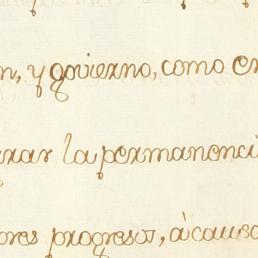 n, y govierno, como en
rar la permanenci
ores progresos, á causa